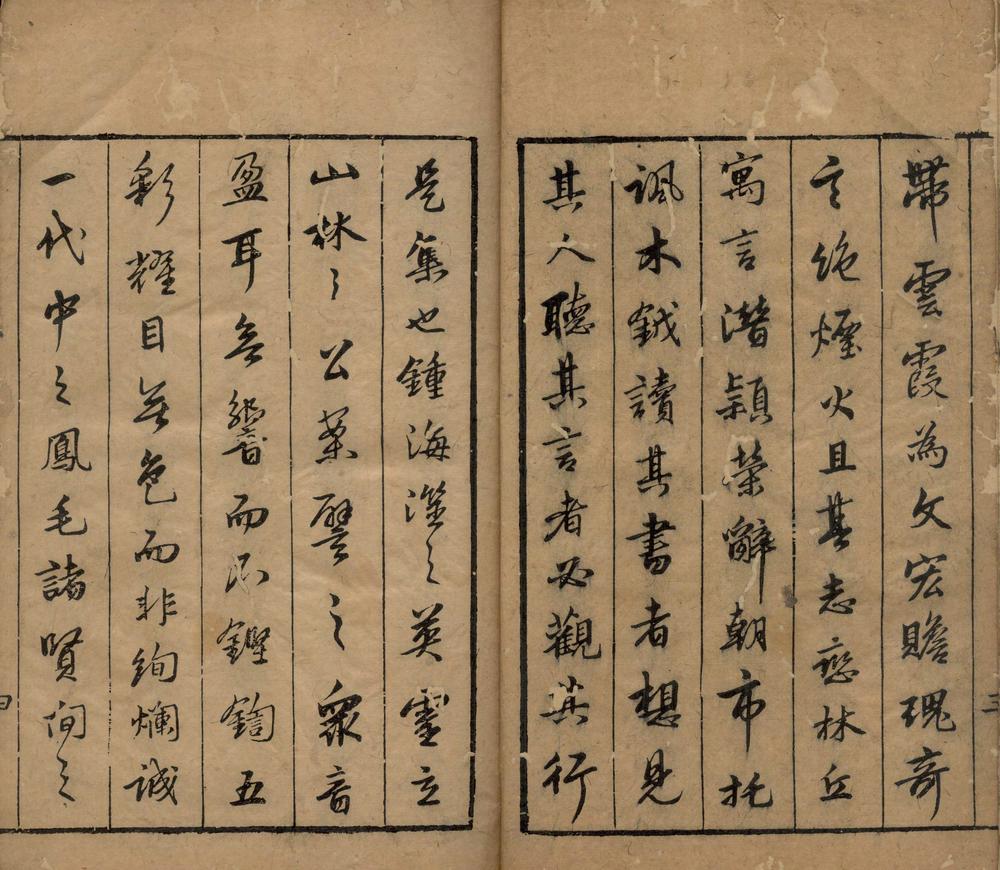 帶雲霞為文宏贍瑰奇
言絶煙火且其志戀林丘
寓言潛穎榮辭朝市托
諷木鉞讀其書者想見
其人聽其言者必觀其行
是集也鍾海澨之英靈立
山林之公業譬之衆音
盈耳無響而不鏗鍧五
彩耀目無色而非絢爛誠
一代中之鳳毛諸賢間之
三
四